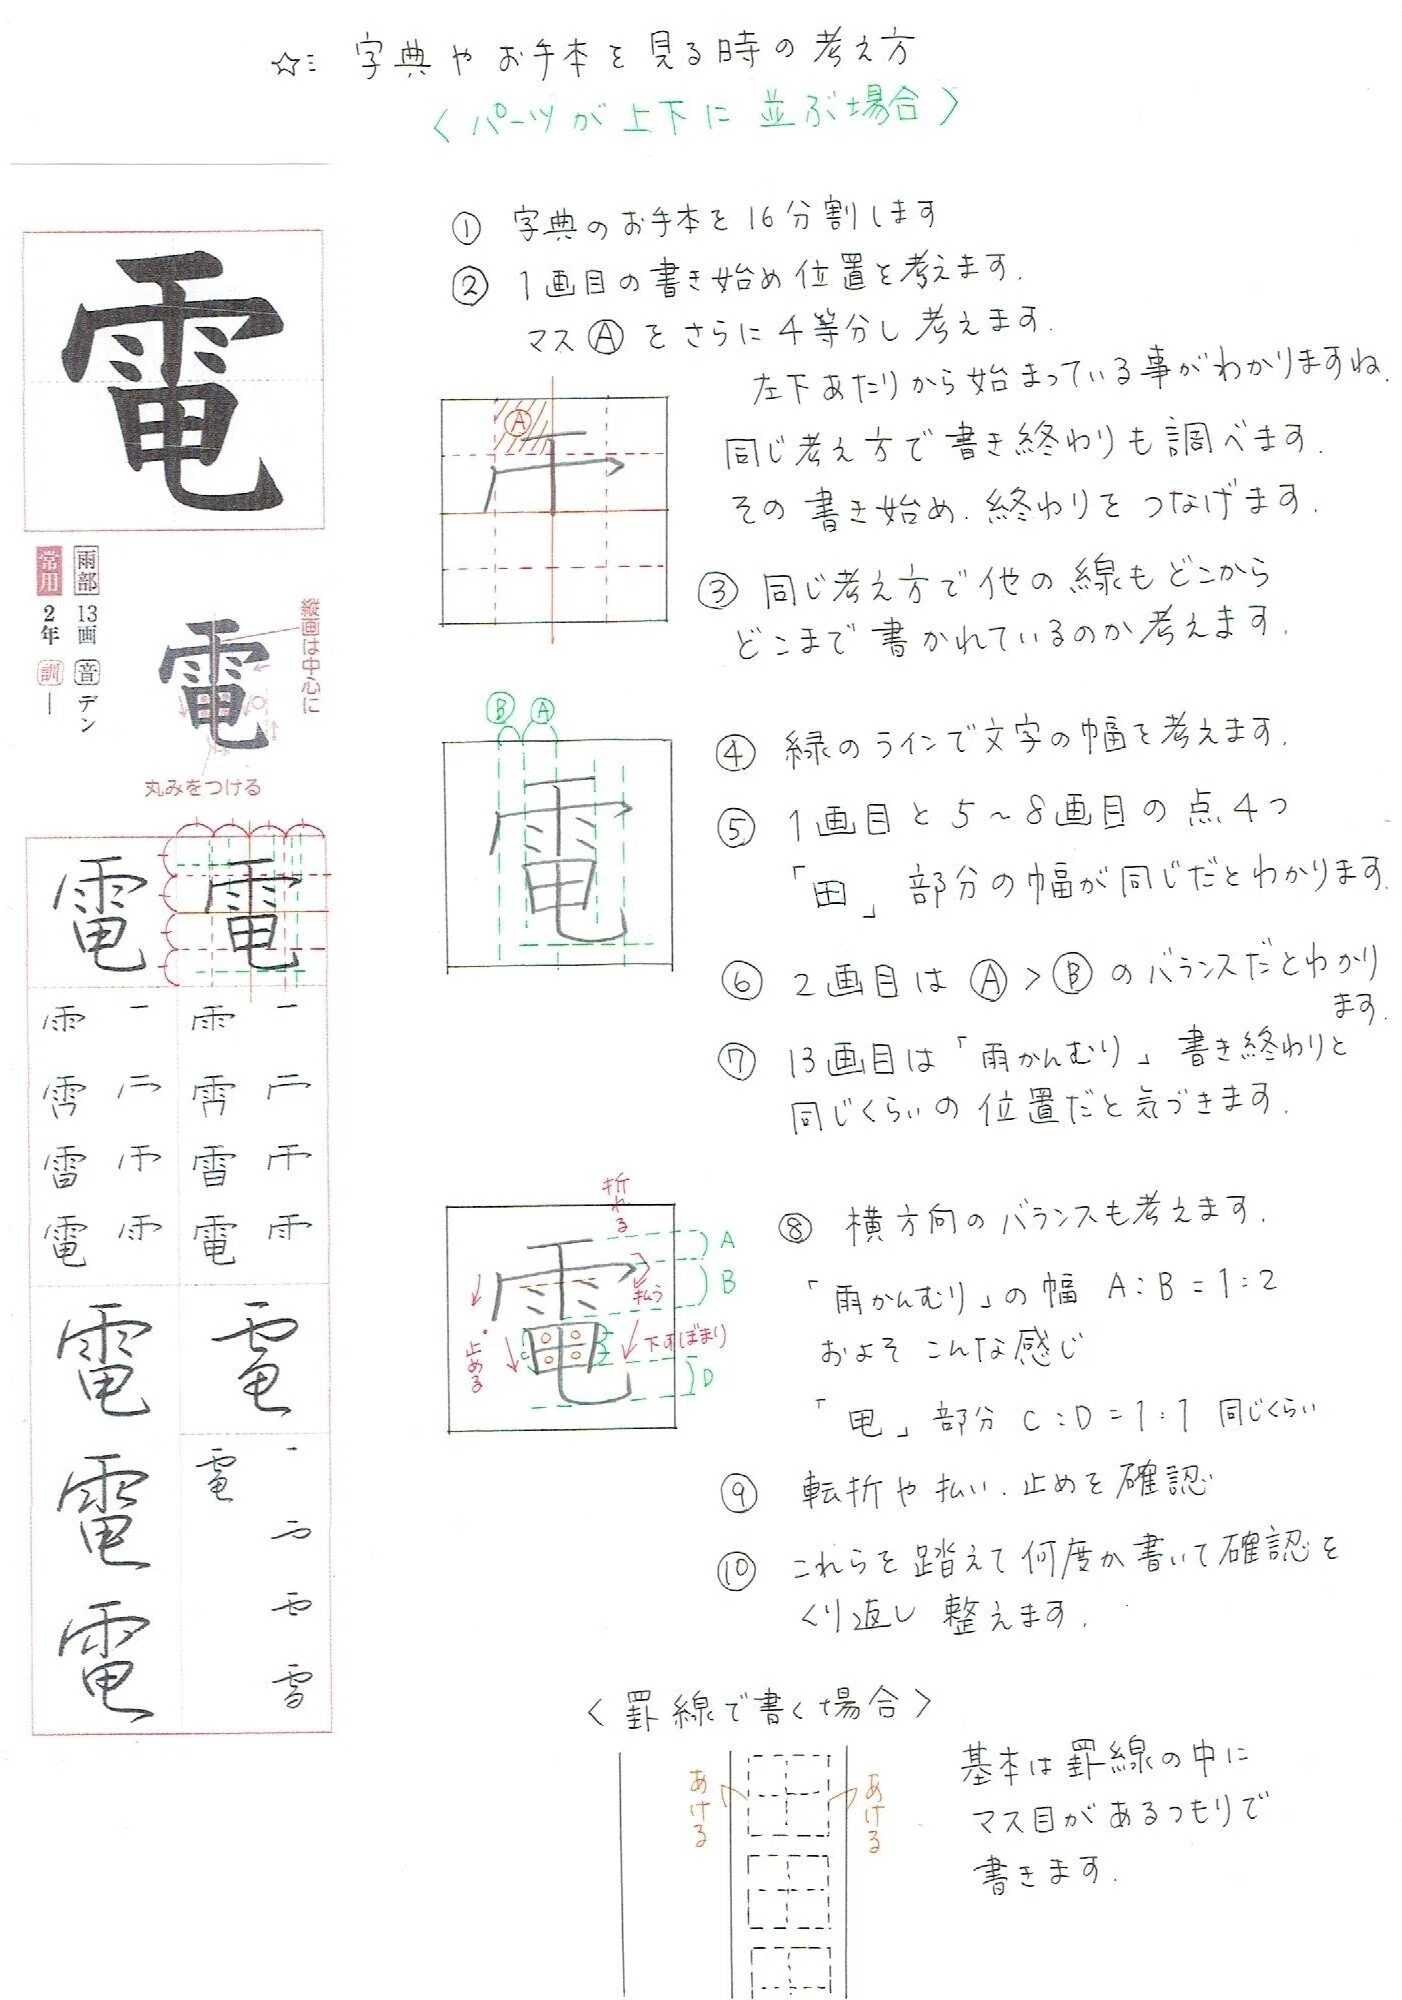 ☆ミ 字典やお手本を見る時の考え方
〈パーツが上下に並ぶ場合〉
電
雨部 13画 音 デン
常用 2年 訓 ー
縦画は中心に
電
丸みをつける
電 電
電 電
電
電
電
① 字典のお手本を16分割します
② 1画目の書き始め位置を考えます.
マスⒶをさらに4等分し考えます.
左下あたりから始まっている事がわかりますね.
同じ考え方で書き終わりも調べます.
その書き始め.終わりをつなげます.
Ⓐ
③ 同じ考え方で他の線もどこから
どこまで書かれているのか考えます.
Ⓑ Ⓐ
電
④ 緑のラインで文字の幅を考えます.
⑤ 1画目と5~8画目の点4つ
「田」部分の幅が同じだとわかります.
⑥ 2画目はⒶ>Ⓑのバランスだとわかり
ます.
⑦ 13画目は「雨かんむり」書き終わりと
同じくらいの位置だと気づきます.
折れる
A
B
払う
止める
C
下すぼまり
D
電
⑧ 横方向のバランスも考えます.
「雨かんむり」の幅 A:B=1:2
およそこんな感じ
「电」部分 C:D=1:1 同じくらい
⑨ 転折や払い.止めを確認
⑩ これらを踏えて何度か書いて確認を
くり返し整えます.
〈罫線で書く場合〉
あける
あける
基本は罫線の中に
マス目があるつもりで
書きます.